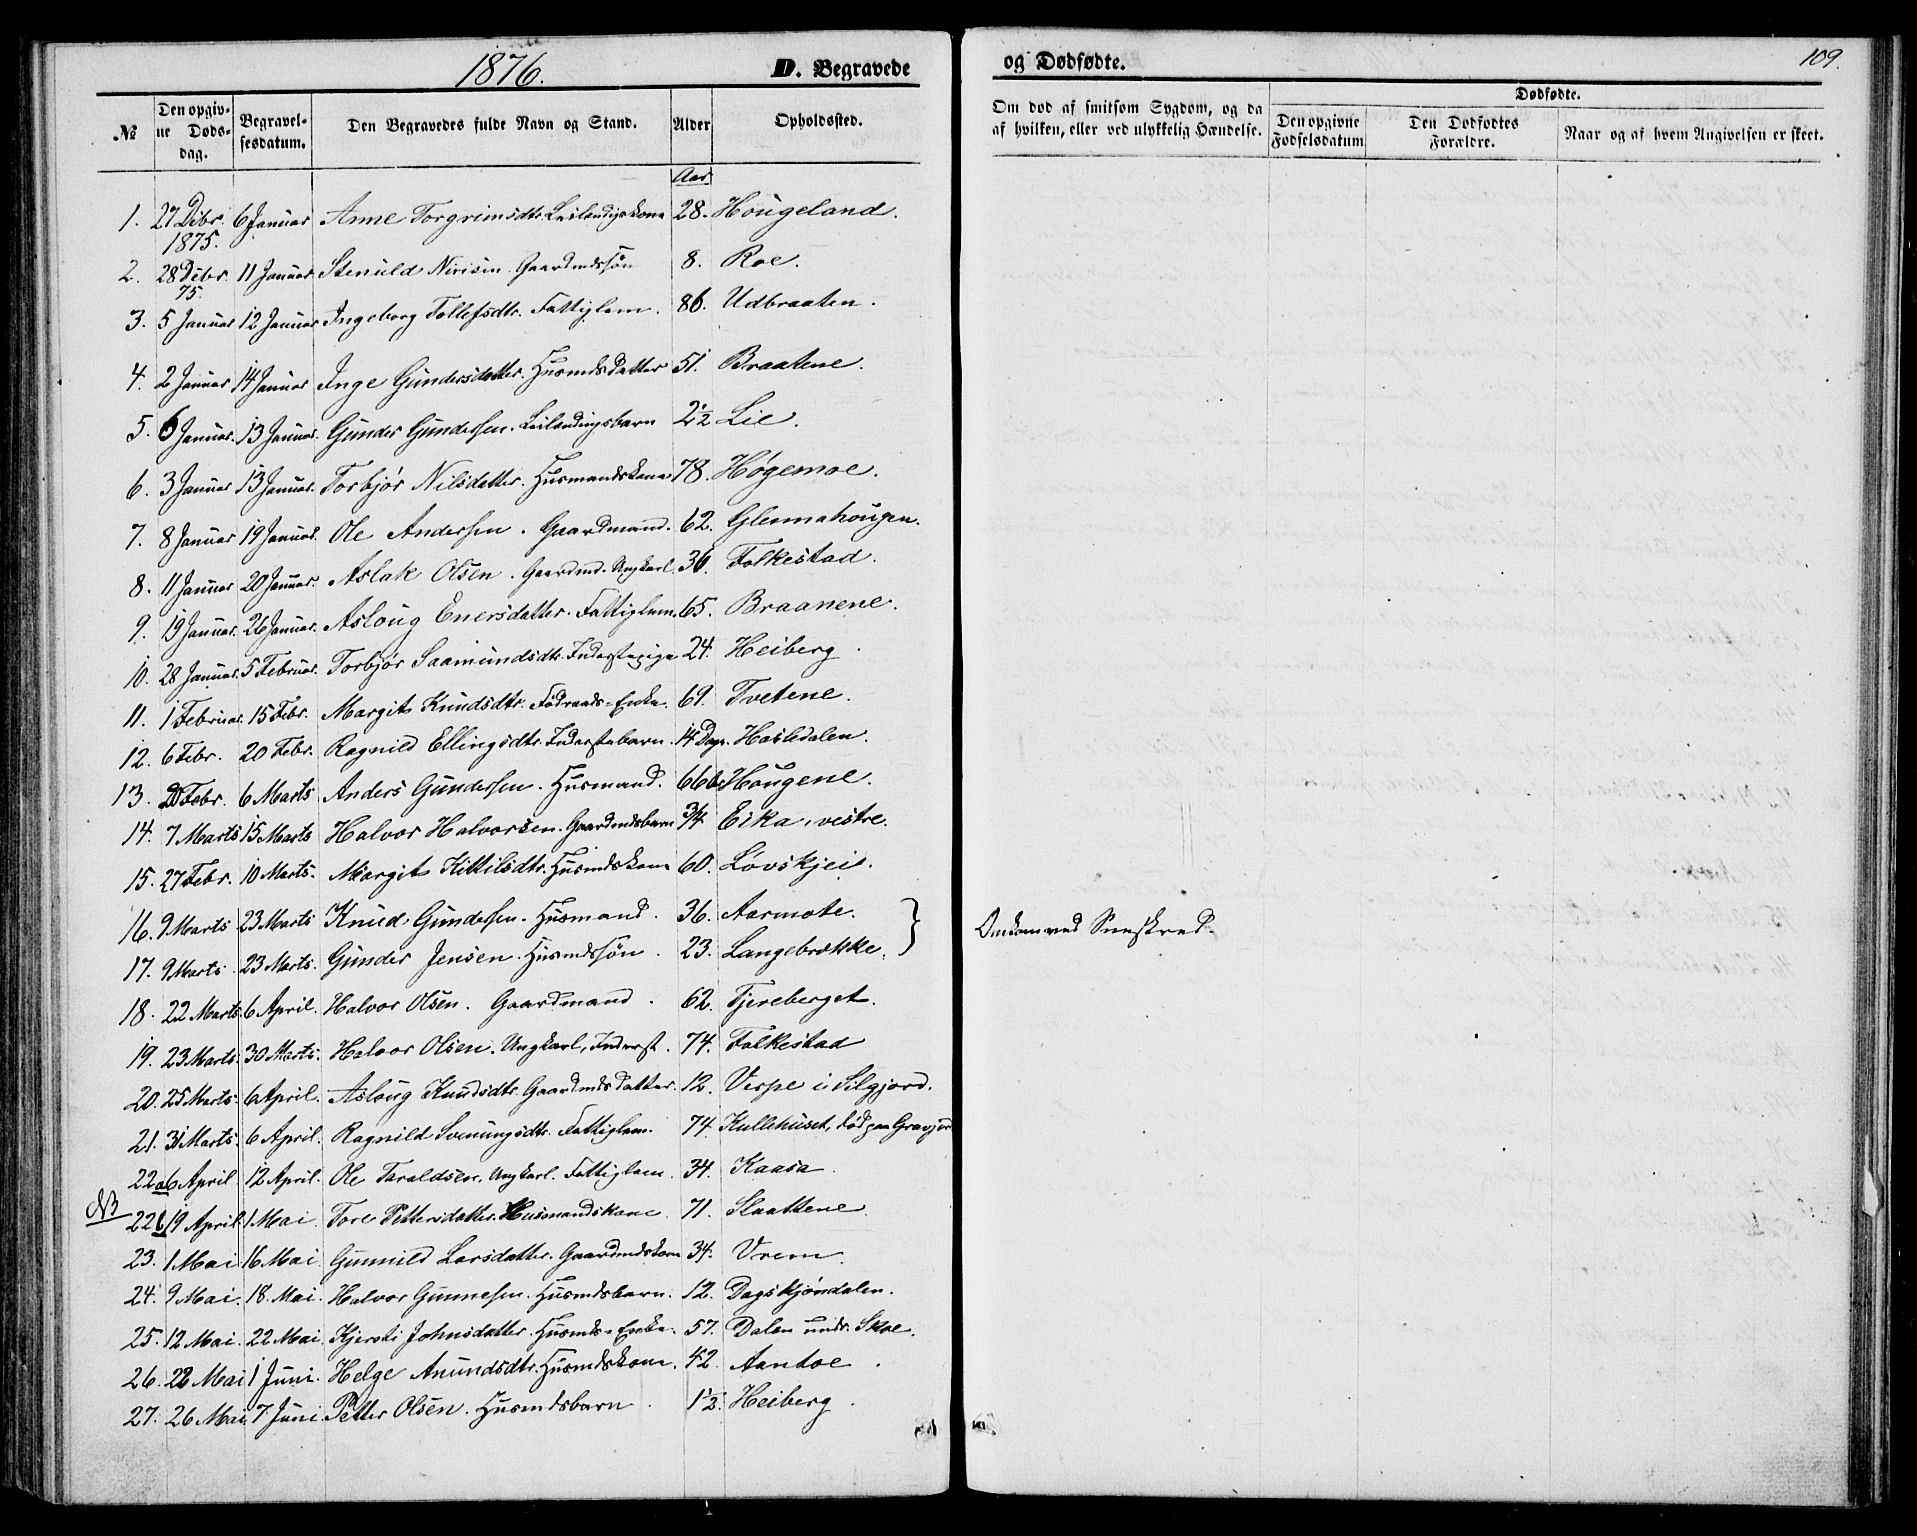 1876.
D. Begravede
og Dødfødte.
109.
№
Den opgivne Døds-dag.
Begravelsesdatum.
Den Begravedes fulde Navn og Stand.
Alder
Opholdssted.
Om død af smitsom Sygdom, og da af hvilken, eller ved ulykkelig Hændelse.
Dødfødte.
Den opgivne Fødselsdatum
Den Dødfødtes Forældre.
Naar og af hvem Angivelsen er skeet.
Aar
1. 27 Debr. 1875. 6 Januar Anne Torgrimsdtr. Leilendigskone 28. Hougeland.
2. 28 Debr. 75. 11 Januar Stenuld Nirisen. Gaardmdssøn 8. Roe.
3. 5 Januar 12 Januar Ingeborg Tollefsdtr. Fattiglem. 86. Udbraaten.
4. 2 Januar 14 Januar Inge Gundersdatter. Husmdsdatter 51. Braatene.
5. 6 Januar. 13 Januar. Gunder Gundersen. Leilendingsbarn 2 1/2 Lie.
6. 3 Januar 13 Januar. Torbjør Nilsdatter. Husmandskone 78. Høgemoe.
7. 8 Januar 19 Januar. Ole Andersen. Gaardmand. 62. Glennahougen.
8. 11 Januar 20 Januar. Aslak Olsen. Gaardmd. Ungkarl 36. Folkestad.
9. 19 Januar. 26 Januar. Asloug Enersdatter. Fattiglem. 65. Braanene.
10. 28 Januar. 5 Februar. Torbjør Saamundsdtr. Inderstepige 24. Heiberg.
11. 1 Februar. 15 Febr. Margit Knudsdtr. Födraads-Enke. 69. Tvetene.
12. 6 Febr. 20 Febr. Ragnild Ellingsdtr. Inderstebarn. 14 Dage. Hasledalen.
13. 20 Febr. 6 Marts Anders Gundersen. Husmand. 66 Hougene.
14. 7 Marts 15 Marts Halvor Halvorsen. Gaardmdsbarn 3/4 Eika, vestre.
15. 27 Febr. 10 Marts. Margit Kittilsdtr. Husmdskone 60. Løvskjeie.
16. 9 Marts 23 Marts Knud Gundersen. Husmand. 36. Aarmote. } Omkom ved Sneskred.
17. 9 Marts. 23 Marts. Gunder Jensen. Husmdssøn. 23. Langebrække.
18. 22 Marts. 6 April. Halvor Olsen. Gaardmand. 62. Tjereberget.
19. 23 Marts. 30 Marts. Halvor Olsen. Ungkarl, Inderst. 74. Folkestad
20. 25 Marts. 6 April. Asloug Knudsdtr. Gaardmdsdatter. 12. Verpe i Silgjord.
21. 31 Marts. 6 April. Ragnild Svenungsdtr. Fattiglem. 74. Kullehuset, død paa
22a 6 April 12 April. Ole Taraldsen. Ungkarl. Fattiglem. 34. Kaasa.
NB 22b 19 April 1 Mai. Tore Pettersdatter. Husmandskone 71. Slaattene.
23. 1 Mai 16 Mai Gunnild Larsdatter. Gaardmdskone 34. Vrem.
24. 9 Mai. 18. Mai. Halvor Gunnesen. Husmdsbarn. 12. Dagskjøndalen.
25. 12 Mai. 22 Mai Kjersti Johnsdatter. Husmds-Enke. 57. Dalen undr. Skoe.
26. 22 Mai 1 Juni. Helge Anundsdtr. Husmdskone. 42. Aantoe.
27. 26 Mai. 7 Juni Petter Olsen. Husmdsbarn. 1 1/2. Heiberg.